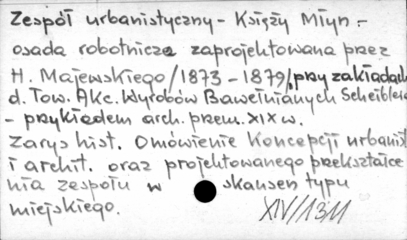 Zespół urbanistyczny - Księży Młyn -
osada robotnicza zaprojektowana przez
H. Majewskiego /1873 - 1879/, przy zakładach
d. Tow. Akc. Wyrobów Bawełnianych Scheiblera
- przykładem arch. przem. XIX w.
Zarys hist. Omówienie Koncepcji urbanist
i archit. oraz projektowanego przekształce
nia zespołu w skansen typu
miejskiego.
XIV/1311